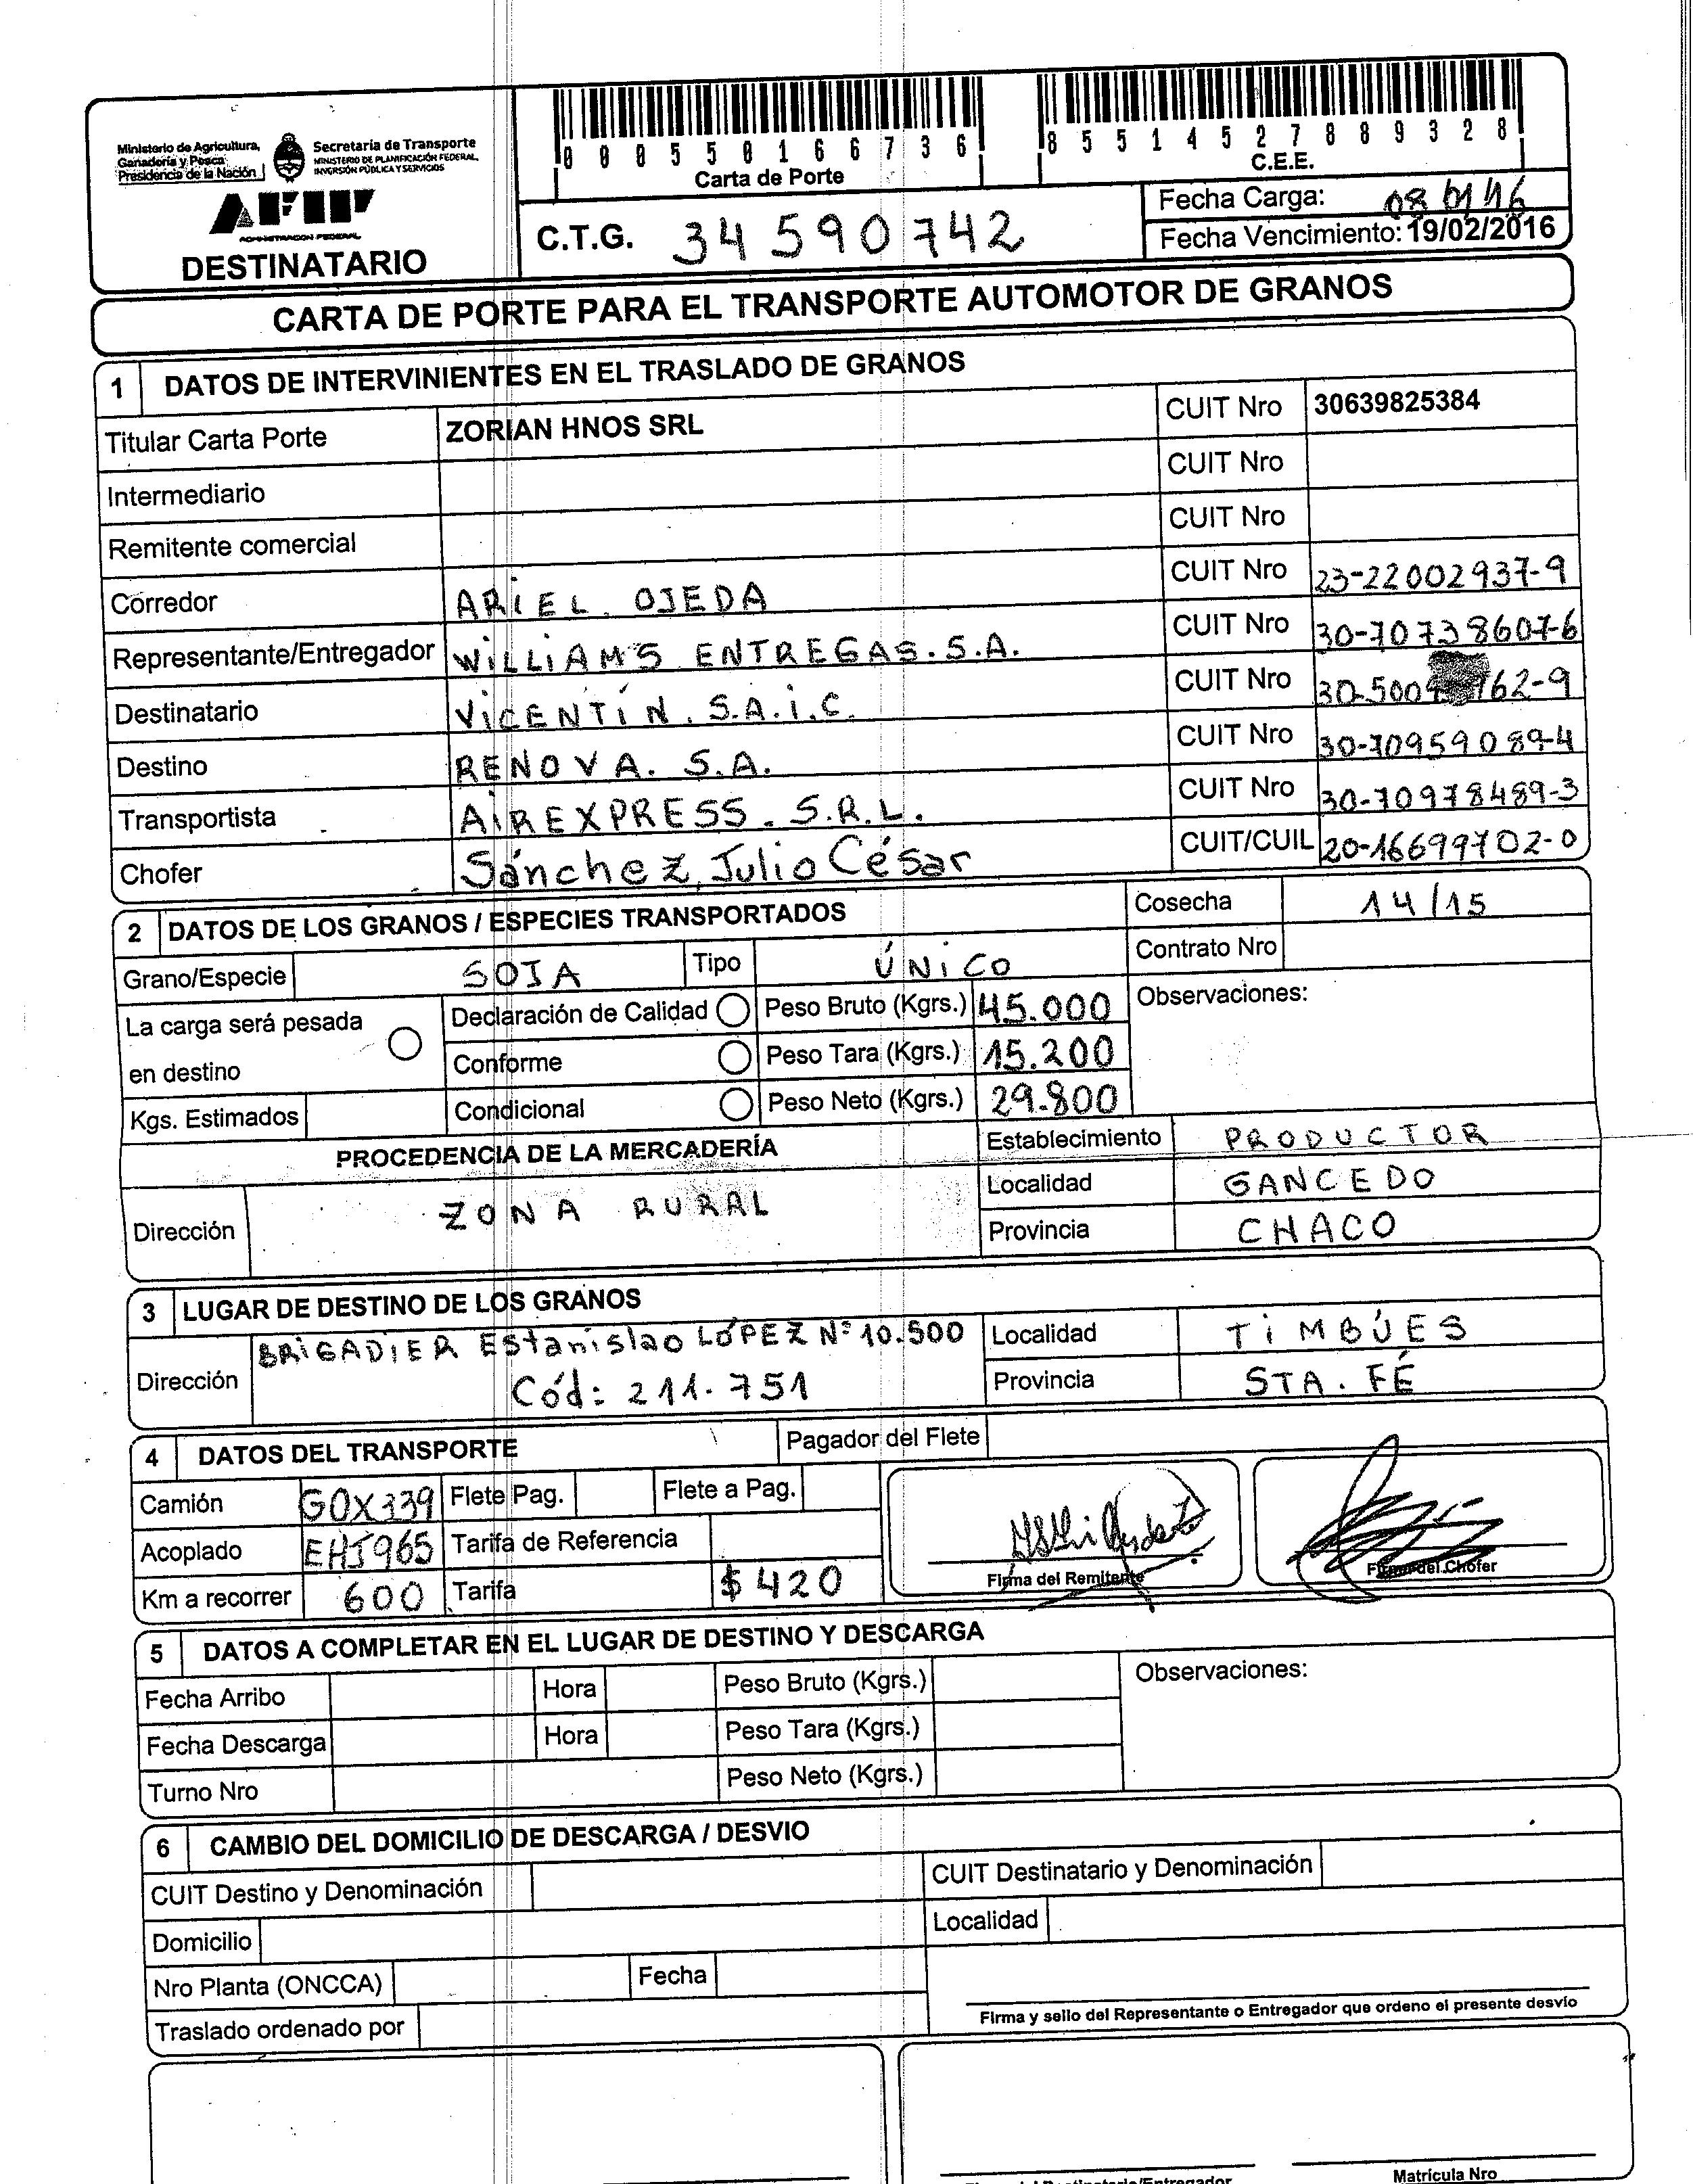 Ministerio de Agricultura,
Ganadería y Pesca
Presidencia de la Nación
Secretaría de Transporte
MINISTERIO DE PLANIFICACIÓN FEDERAL,
INVERSIÓN PÚBLICA Y SERVICIOS
AFIP
ADMINISTRACION FEDERAL
DESTINATARIO
000550166736
Carta de Porte
85514527889328
C.E.E.
C.T.G. 34590742
Fecha Carga: 08/01/16
Fecha Vencimiento: 19/02/2016
CARTA DE PORTE PARA EL TRANSPORTE AUTOMOTOR DE GRANOS
1 DATOS DE INTERVINIENTES EN EL TRASLADO DE GRANOS
Titular Carta Porte ZORIAN HNOS SRL CUIT Nro 30639825384
Intermediario CUIT Nro
Remitente comercial CUIT Nro
Corredor ARIEL OJEDA CUIT Nro 23-22002937-9
Representante/Entregador WILLIAMS ENTREGAS.S.A. CUIT Nro 30-70738607-6
Destinatario VICENTÍN.S.A.i.C. CUIT Nro
Destino RENOVA. S.A. CUIT Nro 30-70959089-4
Transportista AIREXPRESS.S.R.L. CUIT Nro 30-70978489-3
Chofer Sánchez, Julio César CUIT/CUIL 20-16699702-0
2 DATOS DE LOS GRANOS / ESPECIES TRANSPORTADOS Cosecha 14/15
Grano/Especie SOJA Tipo ÚNICO Contrato Nro
La carga será pesada
en destino
Declaración de Calidad Peso Bruto (Kgrs.) 45.000 Observaciones:
Conforme Peso Tara (Kgrs.) 15.200
Kgs. Estimados Condicional Peso Neto (Kgrs.) 29.800
PROCEDENCIA DE LA MERCADERÍA Establecimiento PRODUCTOR
Dirección ZONA RURAL Localidad GANCEDO
Provincia CHACO
3 LUGAR DE DESTINO DE LOS GRANOS
Dirección BRIGADIER Estanislao LÓPEZ Nº 10.500 Localidad TIMBÚES
Cód: 211.751 Provincia STA. FÉ
4 DATOS DEL TRANSPORTE Pagador del Flete
Camión GOX339 Flete Pag. Flete a Pag.
Acoplado EHJ965 Tarifa de Referencia
Km a recorrer 600 Tarifa $ 420
Firma del Remitente Firma del Chofer
5 DATOS A COMPLETAR EN EL LUGAR DE DESTINO Y DESCARGA
Fecha Arribo Hora Peso Bruto (Kgrs.) Observaciones:
Fecha Descarga Hora Peso Tara (Kgrs.)
Turno Nro Peso Neto (Kgrs.)
6 CAMBIO DEL DOMICILIO DE DESCARGA / DESVIO
CUIT Destino y Denominación CUIT Destinatario y Denominación
Domicilio Localidad
Nro Planta (ONCCA) Fecha
Traslado ordenado por
Firma y sello del Representante o Entregador que ordeno el presente desvío
Matrícula Nro